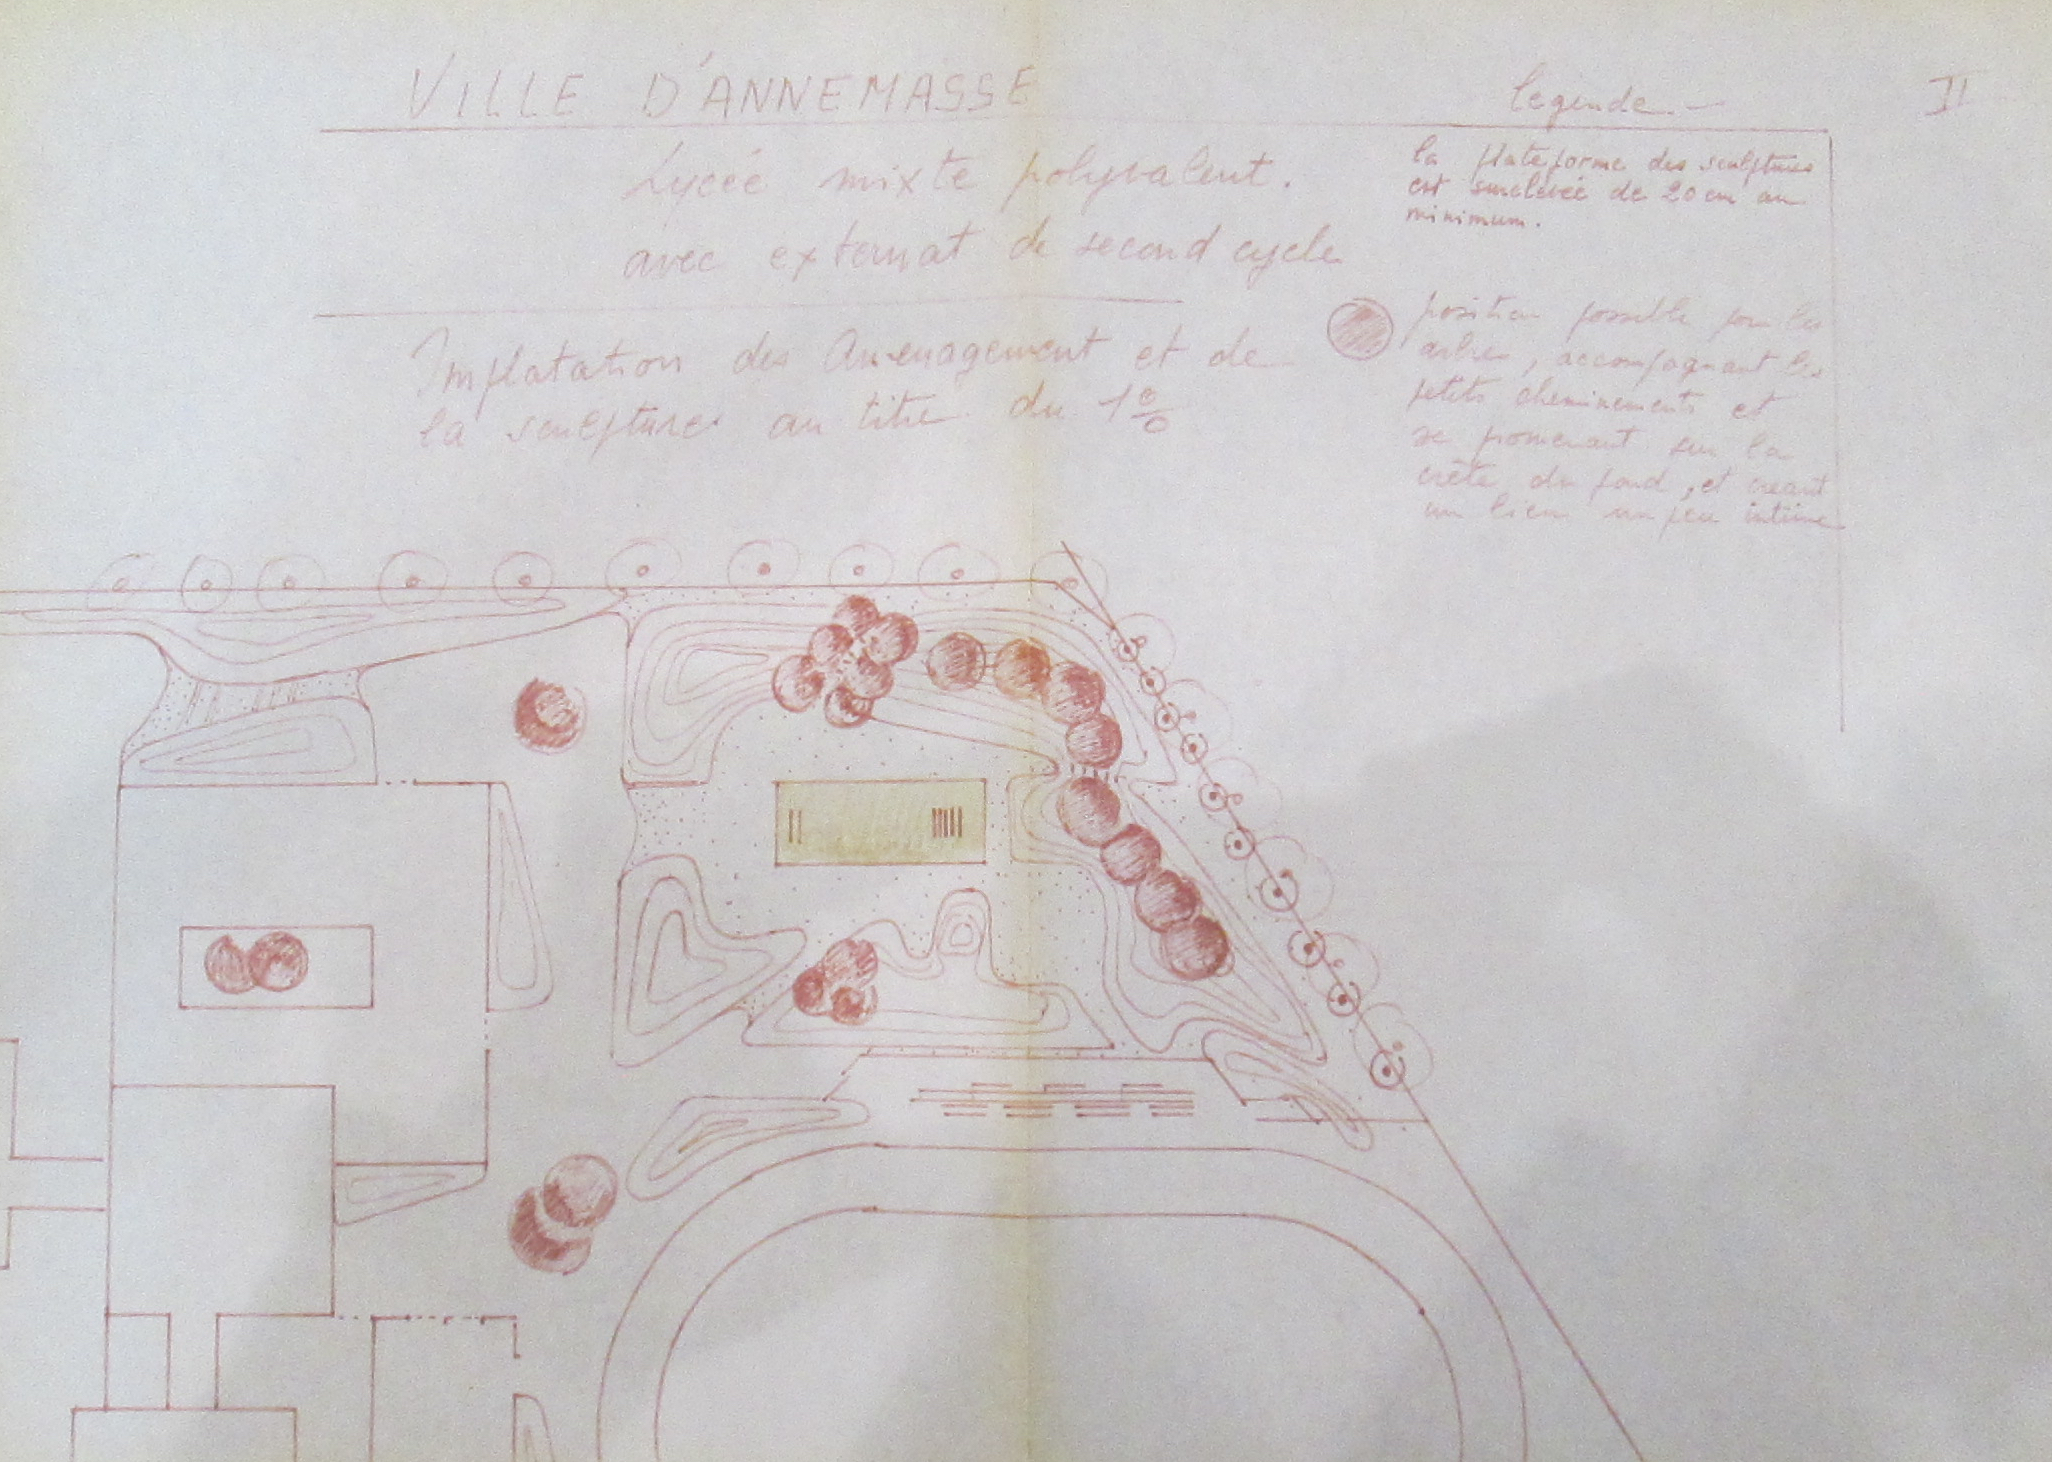 VILLE D'ANNEMASSE
Lycée mixte polyvalent.
avec externat de second cycle
Implatation des Amenagement et de
la sculpture au titre du 1%
legende
II
la plateforme des sculptures
est surelevée de 20 cm au
minimum.
position possible pour les
arbres, accompagnant les
petits cheminements et
se promenant sur la
crète du fond, et creant
un lieu un peu intime